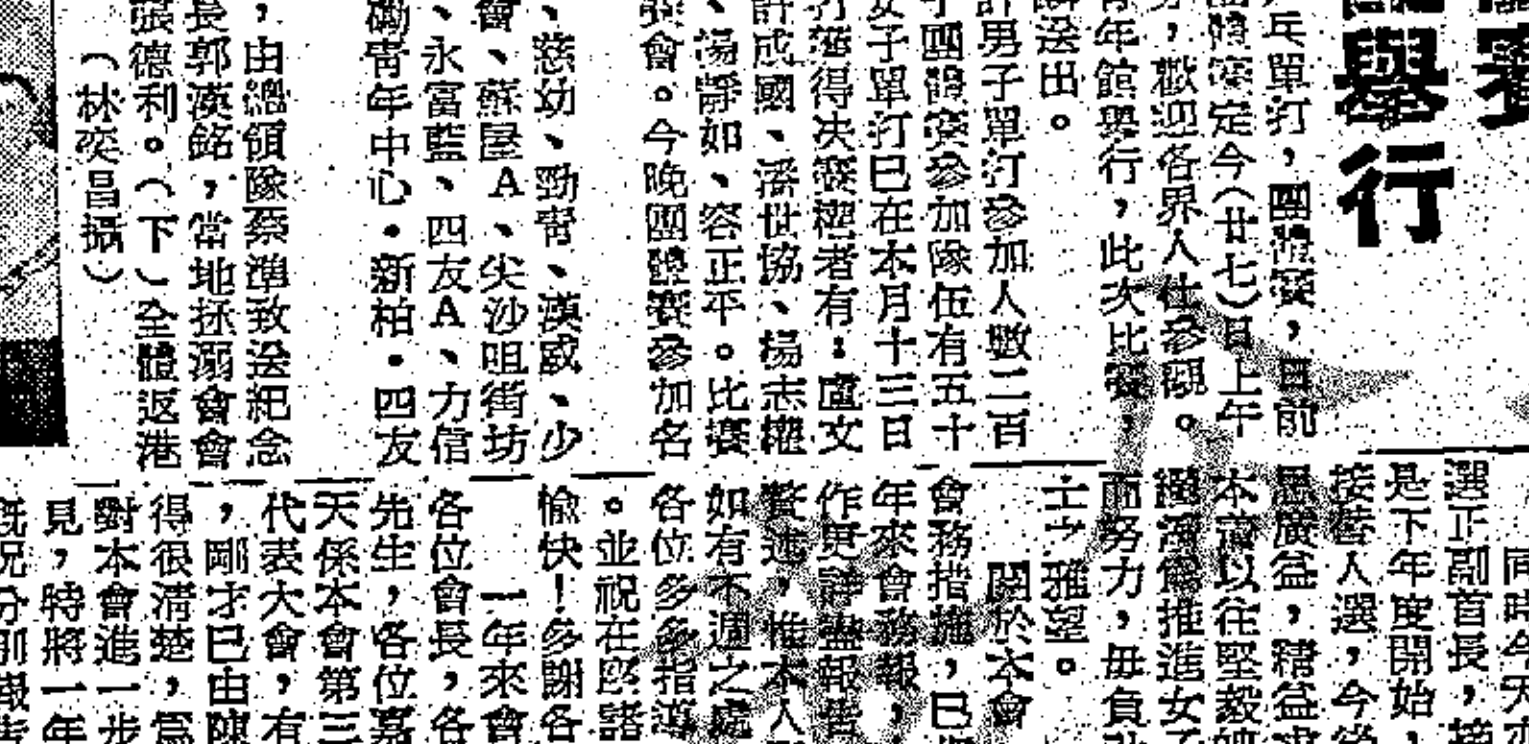 舉行
乓單打，團體賽，日前
體賽定今（廿七）日上午
，歡迎各界人仕參觀。
年館舉行，此次比賽，
送出。
男子單打參加人數二百
團體賽參加隊伍有五十
女子單打已在本月十三日
打獲得决賽權者有：盧文
許成國、潘世協、楊志權
、湯靜如、容正平。比賽
會。今晚團體賽參加名
、慈幼、勁青、漢威、少
會、蘇屋A、尖沙咀街坊
、永富藍、四友A、力信
勵青年中心・新柏・四友
，由總領隊蔡準致送紀念
長郭漢銘，當地拯溺會會
張德利。（下）全體返港
（林奕昌攝）
同時今天
選正副首長，接
是下年度開始，
接替人選，今後
廣益，精益求
本會以往堅毅
推進女
而努力，毋負
雅望。
關於本會
會務措施，已
年來會務報，
作更詳盡報告
進，惟本人
如有不週之處
各位多多指導
。並祝在座諸
愉快！多謝各
一年來會
各位會長，各
先生，各位嘉
天係本會第三
代表大會，有
，剛才已由陳
得很清楚，爲
對本會進一步
見，特將一年
概況分別報告